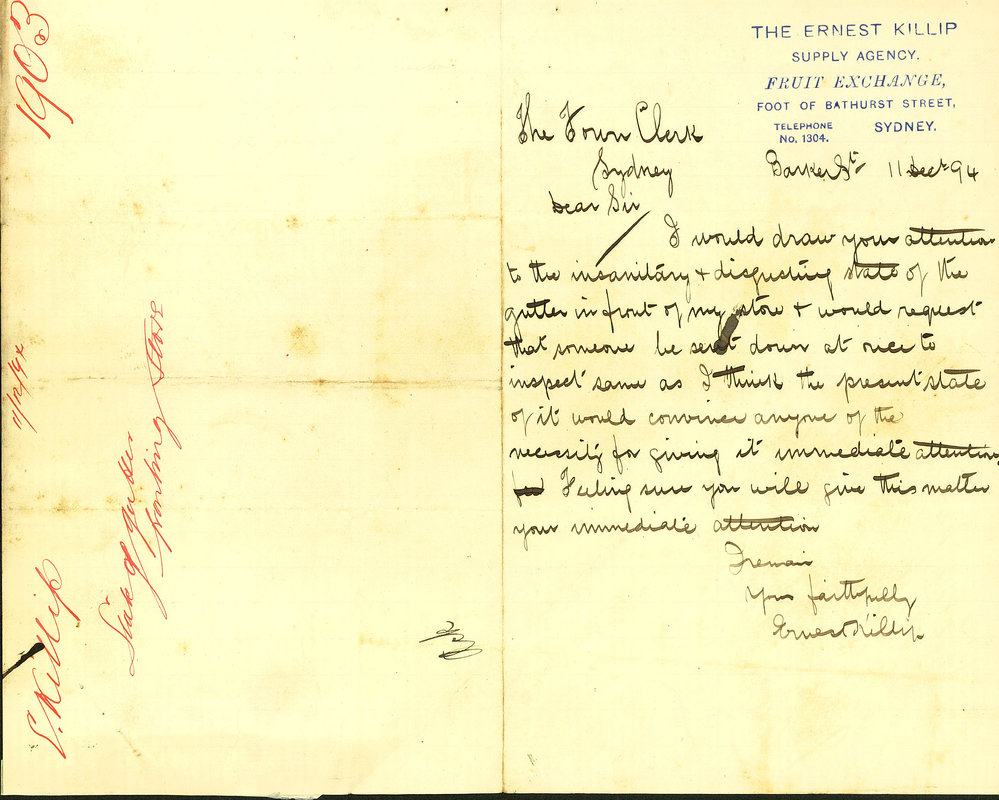 THE ERNEST KILLIP
SUPPLY AGENCY.
FRUIT EXCHANGE,
FOOT OF BATHURST STREET,
TELEPHONE
No. 1304.
SYDNEY.
Barker St 11 Dec 94
The Town Clerk
Sydney
Dear Sir
I would draw your attention
to the insanitary + disgusting state of the
gutter in front of my store + would request
that someone be sent down at once to
inspect same as I think the present state
of it would convince anyone of the
necessity for giving it immediate attention
Feeling sure you will give this matter
your immediate attention
I remain
Your faithfully
Ernest Killip
1903
11/12/94
E. Killip
State of gutter
fronting store